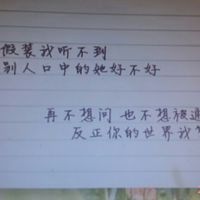 假装我听不到
别人口中的她好不好
再不想问 也不想被
反正你的世界我